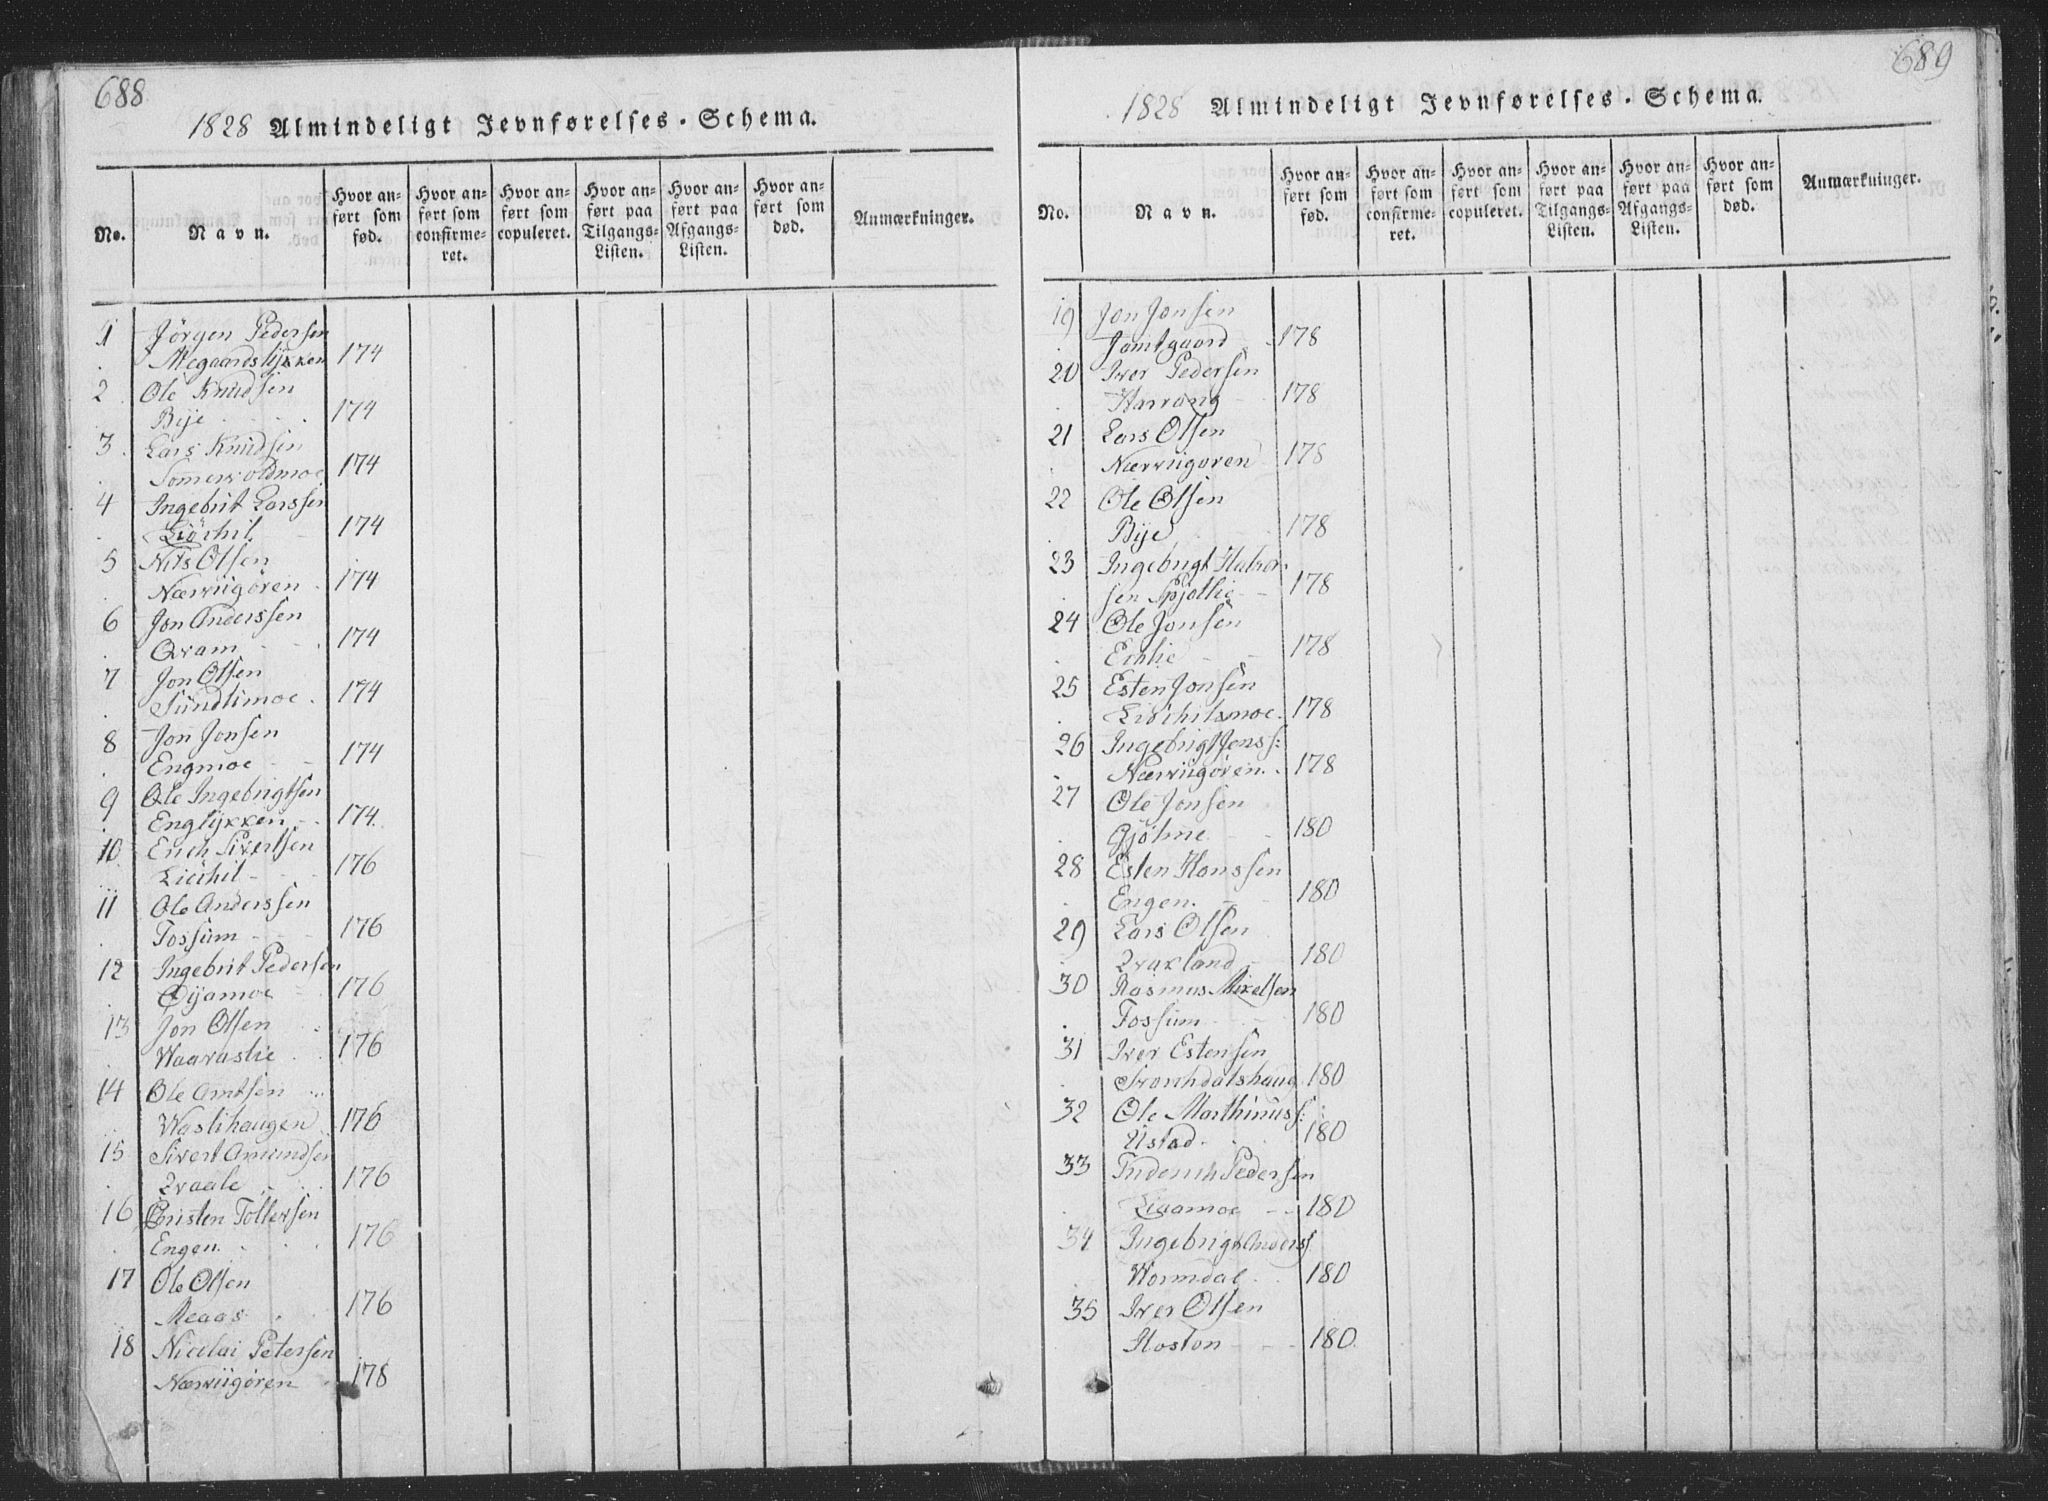 688
1828 Almindeligt Jevnførelses-Schema.
No. Navn. Hvor anført som fød. Hvor anført som confirmeret. Hvor anført som copuleret. Hvor anført paa Tilgangs-Listen. Hvor anført paa Afgangs-Listen. Hvor anført som død. Anmærkninger.
1 Jörgen Pedersen
Megaardslykken 174
2 Ole Knudsen
Bye 174
3 Lars Knudsen
174
4 Ingebrit Larssen
174
5 Nils Olsen
Nærviigören 174
6 Jon Anderssen
Qvam 174
7 Jon Olsen
Sundlimoe 174
8 Jon Jonsen
Engmoe 174
9 Ole Ingebrigtsen
Englykken 174.
10 Erich Sivertsen
176
11 Ole Anderssen
Fossum 176
12 Ingebrit Pedersen
Öyamoe 176
13 Jon Olsen
Waaraslie 176
14 Ole Arntsen
Waslihaugen 176
15 Sivert Amundsen
Qvaale 176
16 Christen Tollersen
Engen 176
17 Ole Olsen
Reaas 176
18 Nicolai Petersen
Nærviigören 178
689
1828 Almindeligt Jevnførelses-Schema.
No. Navn. Hvor anført som fød. Hvor anført som confirmeret. Hvor anført som copuleret. Hvor anført paa Tilgangs-Listen. Hvor anført paa Afgangs-Listen. Hvor anført som død. Anmærkninger.
19 Jon Jonsen
Jamtgaard 178
20 Iver Pedersen
Harrang 178
21 Lars Olsen
Nærviigören 178
22 Ole Olsen
Bye 178
23 Ingebrigt Halvor-
sen Spjotlie 178
24 Ole Jonsen
Echlie 178
25 Esten Jonsen
178
26 Ingebrigt Jonss:
Nærviigören 178
27 Ole Jonsen
Gjölme 180
28 Esten Hanssen
Engen 180
29 Lars Olsen
Qvakland 180
30 Rasmus Mikelsen
Fossum 180
31 Iver Estensen
180
32 Ole Marthinuss:
Ustad 180
33 Friderich Pedersen
180
34 Ingebrigt Anders:
Wormdal 180
35 Iver Olsen
Hoston 180